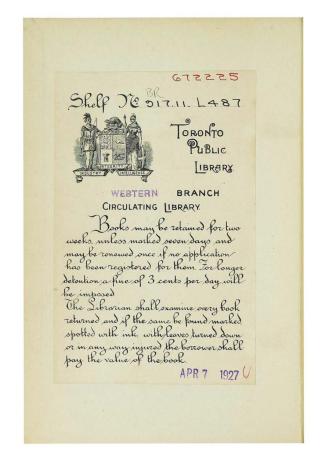 672225
BR
Shelf No 917.11. L487
TORONTO
PUBLIC
LIBRARY
INDUSTRY INTEGRITY INTELLIGENCE
WESTERN BRANCH
CIRCULATING LIBRARY
Books may be retained for two
weeks unless marked seven days and
may be renewed once if no application
has been registered for them. For longer
detention a fine of 3 cents per day will
be imposed
The Librarian shall examine every book
returned and if the same be found marked
spotted with ink, with leaves turned down
or in any way injured the borrower shall
pay the value of the book.
APR 7 1927